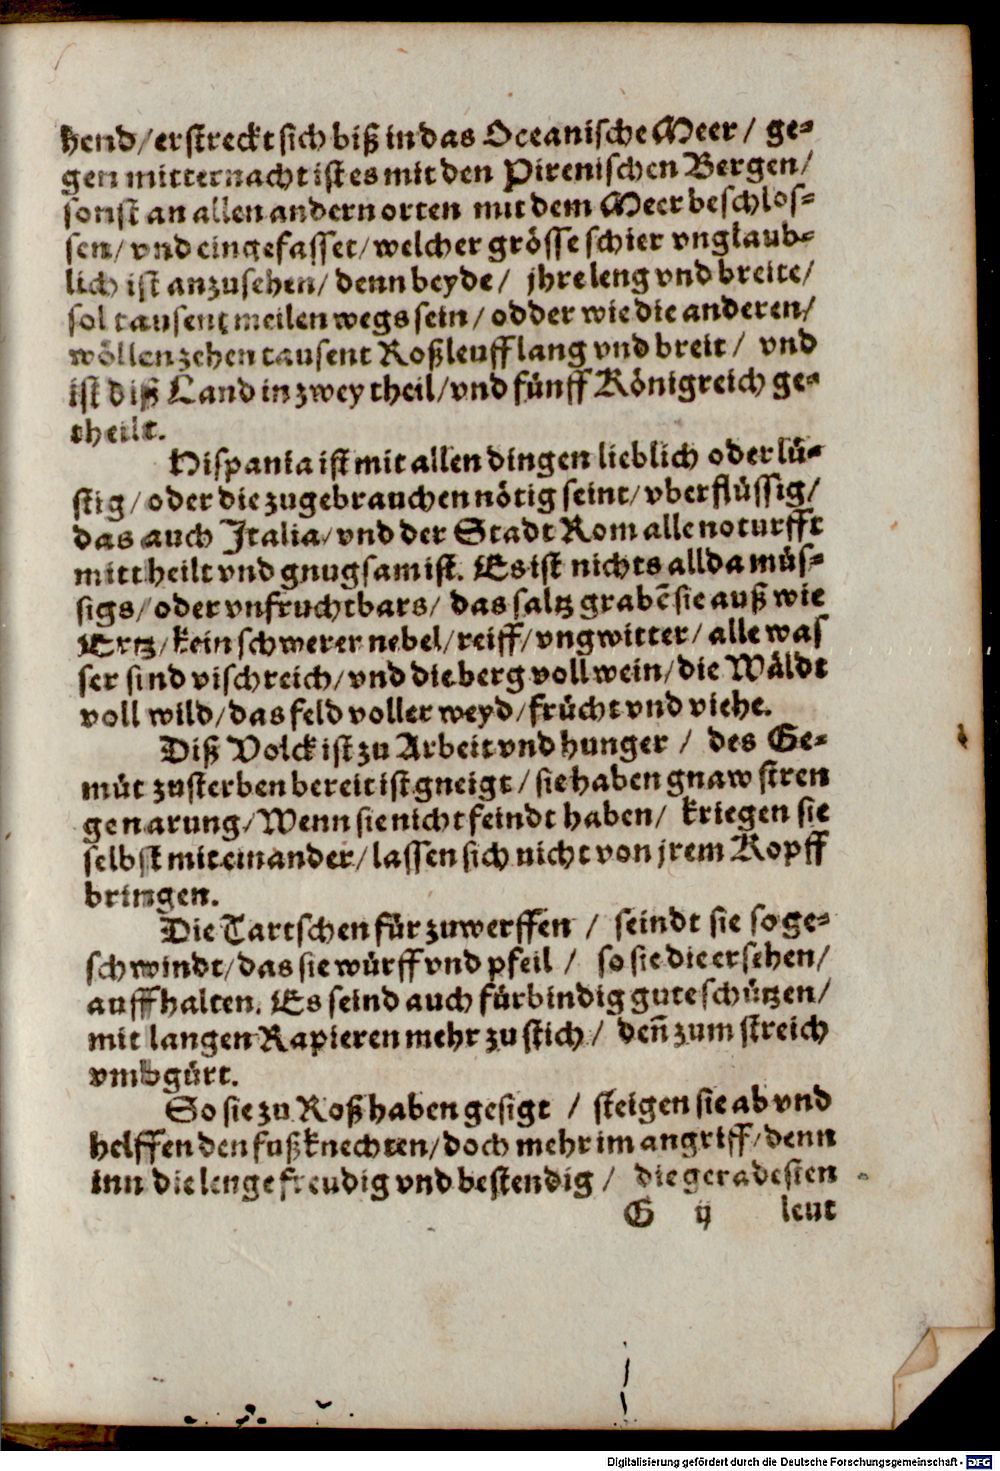 hend/erstreckt sich biß in das Oceanische Meer/ ge-
gen mitternacht ist es mit den Pirenischen Bergen/
sonst an allen andern orten mit dem Meer beschlos-
sen/vnd eingefasset/welcher grösse schier vnglaub-
lich ist anzusehen/ denn beyde/ jhre leng vnd breite/
sol tausent meilen wegs sein/ odder wie die anderen/
wöllen zehen tausent Roßleuff lang vnd breit/ vnd
ist diß Land in zwey theil/vnd fünff Königreich ge-
theilt.
Hispania ist mit allen dingen lieblich oder lü-
stig/oder die zugebrauchen nötig seint/vberflüssig/
das auch Italia/vnd der Stadt Rom alle noturfft
mittheilt vnd gnugsam ist. Es ist nichts allda müs-
sigs/oder vnfruchtbars/ das saltz grabē sie auß wie
Ertz/kein schwerer nebel/reiff/vngwitter/alle was
ser sind vischreich/vnd die berg voll wein/die Wäldt
voll wild/das feld voller weyd/frücht vnd viehe.
Diß Volck ist zu Arbeit vnd hunger/ des Ge-
müt zusterben bereit ist gneigt/sie haben gnaw stren
gen arung/Wenn sie nicht feindt haben/ kriegen sie
selbst mit einander/lassen sich nicht von jrem Kopff
bringen.
Die Tartschen für zuwerffen/ seindt sie so ge-
schwindt/das sie würff vnd pfeil/ so sie die ersehen/
auffhalten. Es seind auch fürbindig gute schützen/
mit langen Rapieren mehr zu stich/ deñ zum streich
vmbgürt.
So sie zu Roß haben gesigt/ steigen sie ab vnd
helffen den fußknechten/doch mehr im angriff/denn
inn die lenge freudig vnd bestendig/ die geradesten
G ij leut
Digitalisierung gefördert durch die Deutsche Forschungsgemeinschaft - DFG